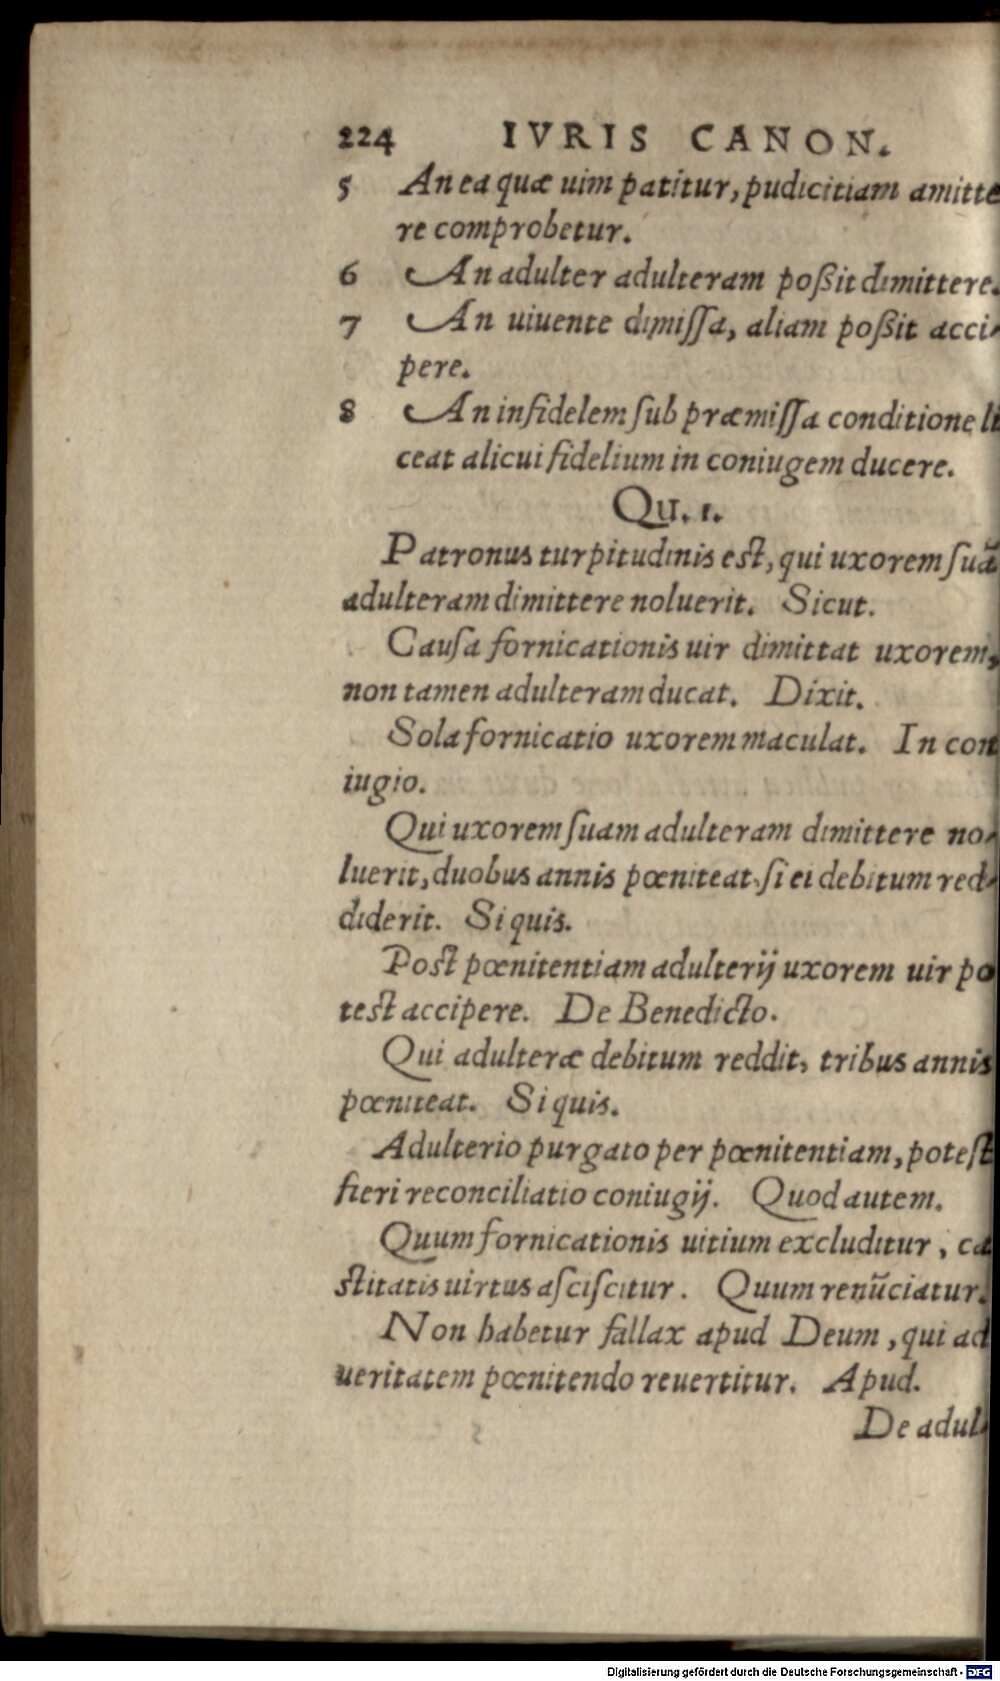 224 IVRIS CANON.
5 An ea quæ uim patitur, pudicitiam amitte
re comprobetur.
6 An adulter adulteram poßit dimittere.
7 An uiuente dimiſſa, aliam poßit acci-
pere.
8 An infidelem ſub præmiſſa conditione li
ceat alicui fidelium in coniugem ducere.
Qu. 1.
Patronus turpitudinis est, qui uxorem ſuã
adulteram dimittere noluerit. Sicut.
Cauſa fornicationis uir dimittat uxorem,
non tamen adulteram ducat. Dixit.
Sola fornicatio uxorem maculat. In con
iugio.
Qui uxorem ſuam adulteram dimittere no-
luerit, duobus annis pœniteat, ſi ei debitum red-
diderit. Si quis.
Post pœnitentiam adulterij uxorem uir po
test accipere. De Benedicto.
Qui adulteræ debitum reddit, tribus annis
pœniteat. Si quis.
Adulterio purgato per pœnitentiam, potest
fieri reconciliatio coniugij. Quod autem.
Quum fornicationis uitium excluditur, ca
stitatis uirtus aſciſcitur. Quum renũciatur.
Non habetur fallax apud Deum, qui ad
ueritatem pœnitendo reuertitur. Apud.
De adul-
Digitalisierung gefördert durch die Deutsche Forschungsgemeinschaft - DFG